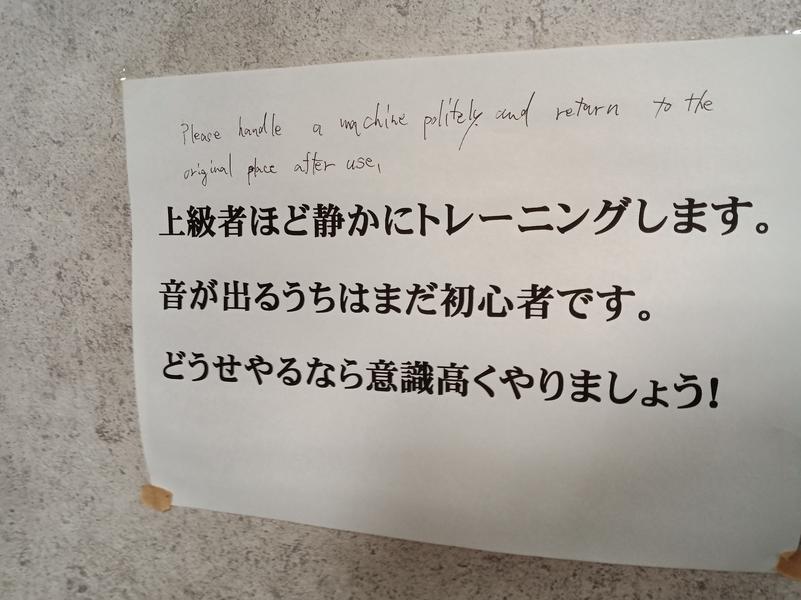 Please handle a machine politely and return to the
original place after use,
上級者ほど静かにトレーニングします。
音が出るうちはまだ初心者です。
どうせやるなら意識高くやりましょう!